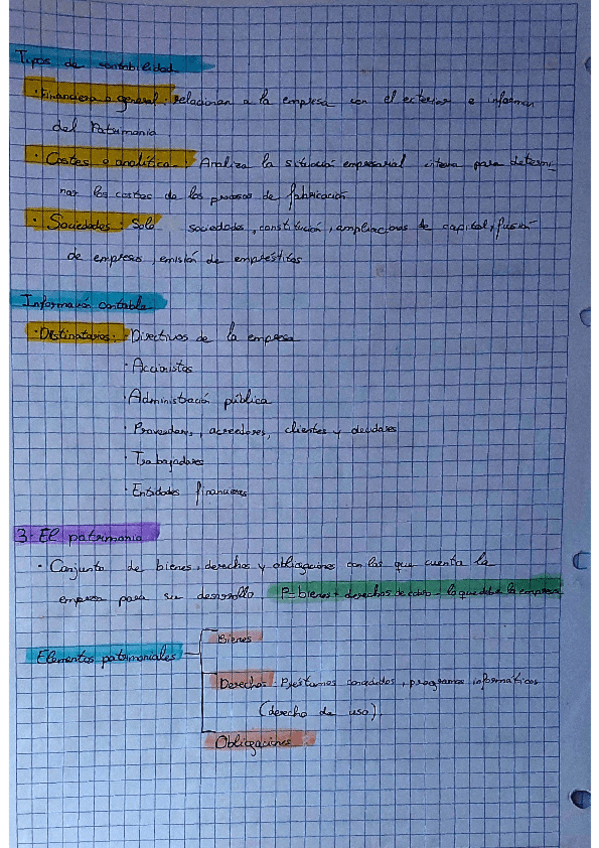 Tipos de contabilidad
· Financiera o general: relacionan a la empresa con el exterior e informan
del Patrimonio
· Costes o analítica: Analiza la situación empresarial interna para determi-
nar los costes de los procesos de fabricación
· Sociedades: Solo sociedades, constitución, ampliaciones de capital, fusión
de empresas, emisión de empréstitos
Información contable
· Destinatarios: Directivos de la empresa
· Accionistas
· Administración pública
· Proveedores, acreedores, clientes y deudores
· Trabajadores
· Entidades financieras
3. El patrimonio
· Conjunto de bienes, derechos y obligaciones con las que cuenta la
empresa para su desarrollo P= bienes + derechos de cobro - lo que debe la empresa
Elementos patrimoniales
Bienes
Derechos: Préstamos concedidos, programas informáticos
(derecho de uso).
Obligaciones